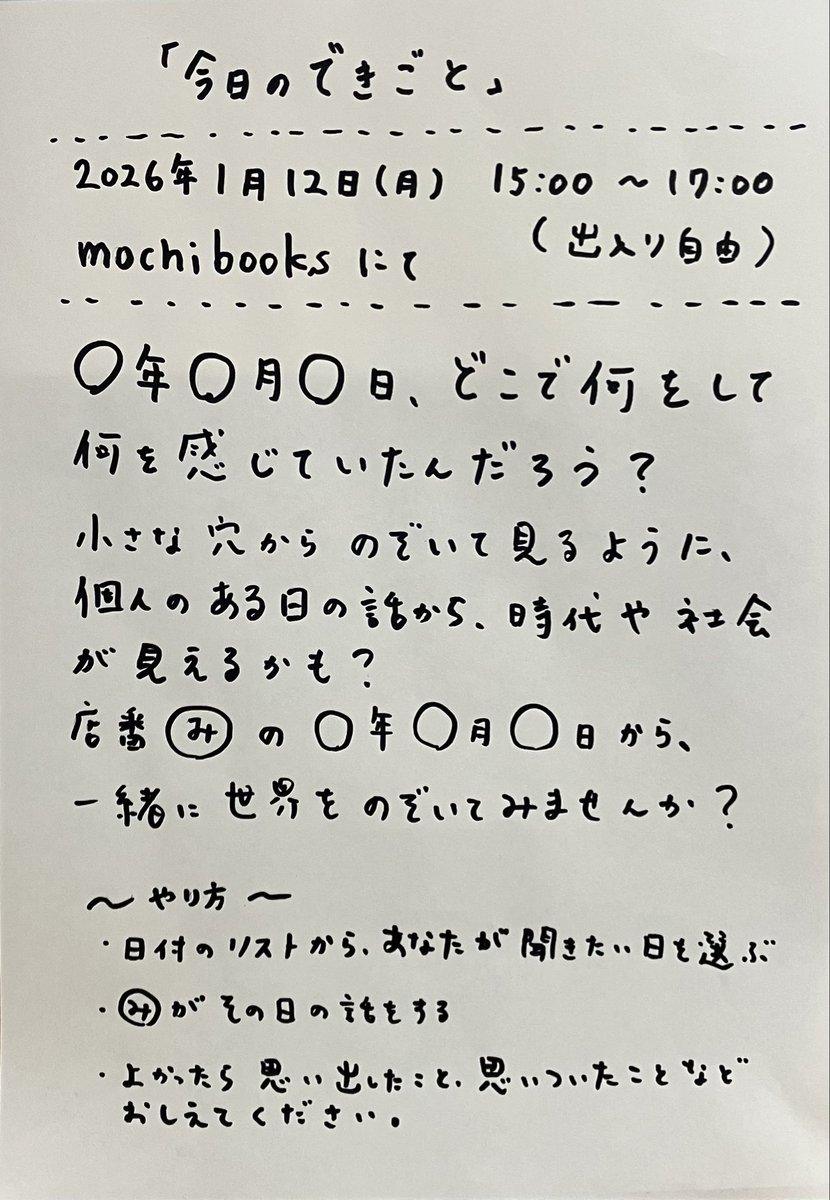 「今日のできごと」
2026年1月12日(月) 15:00 〜 17:00
mochibooks にて (出入り自由)
〇年〇月〇日、どこで何をして
何を感じていたんだろう?
小さな穴からのぞいて見るように、
個人のある日の話から、時代や社会
が見えるかも?
店番 み の 〇年〇月〇日から、
一緒に世界をのぞいてみませんか?
〜 やり方 〜
・日付のリストから、あなたが聞きたい日を選ぶ
・みがその日の話をする
・よかったら思い出したこと、思いついたことなど
おしえてください。